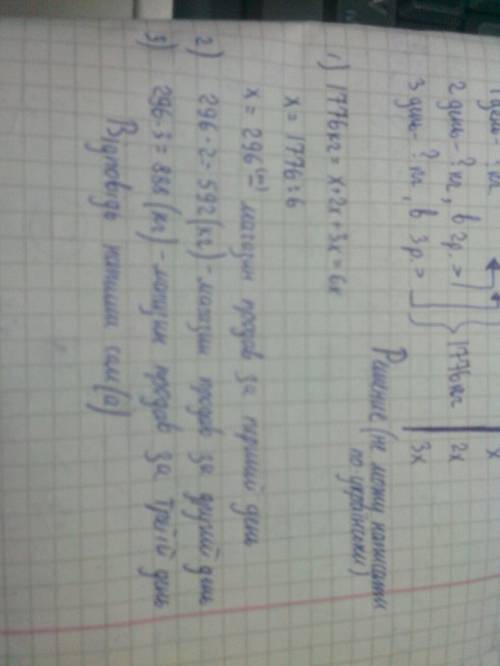 1 день - ? кг x
2 день - ? кг, в 2р. > } 1776кг 2x
3 день - ? кг, в 3р. > 3x
Рішення (не можу написати
по українськи)
1) 1776кг = x+2x+3x=6x
x = 1776:6
x = 296(кг) магазин продав за перший день
2) 296·2=592(кг) - магазин продав за другий день
3) 296·3=888(кг) - магазин продав за третій день
Відповідь напиши сам(а)